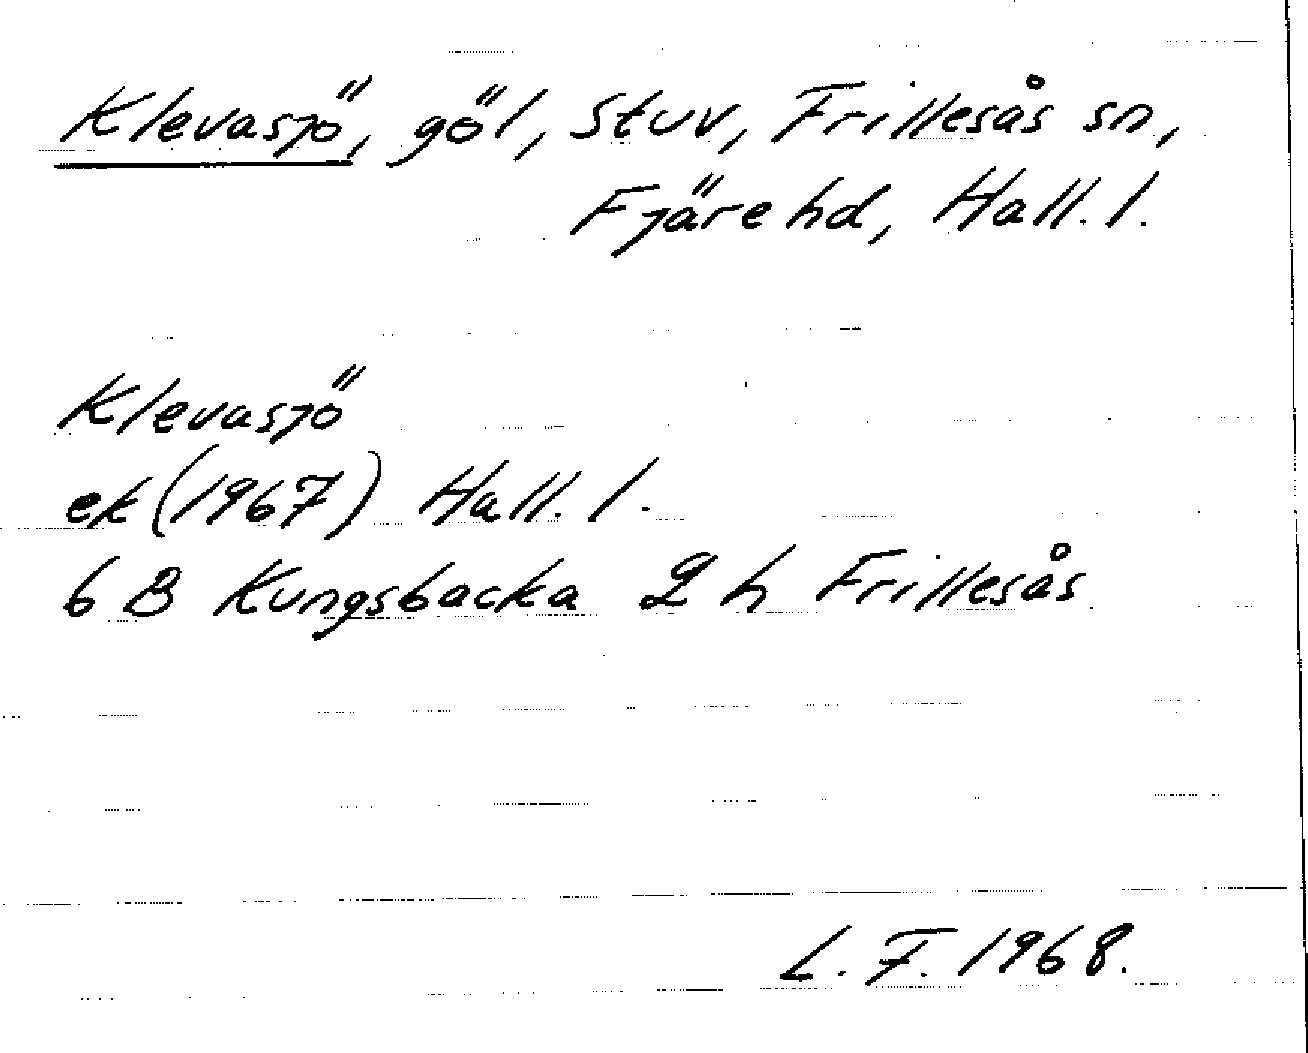 Klevasjö, göl, Stuv, Frillesås sn,
Fjäre hd, Hall. l.
Klevasjö
ek (1967) Hall. l.
6 B Kungsbacka 2 h Frillesås
L. F. 1968.